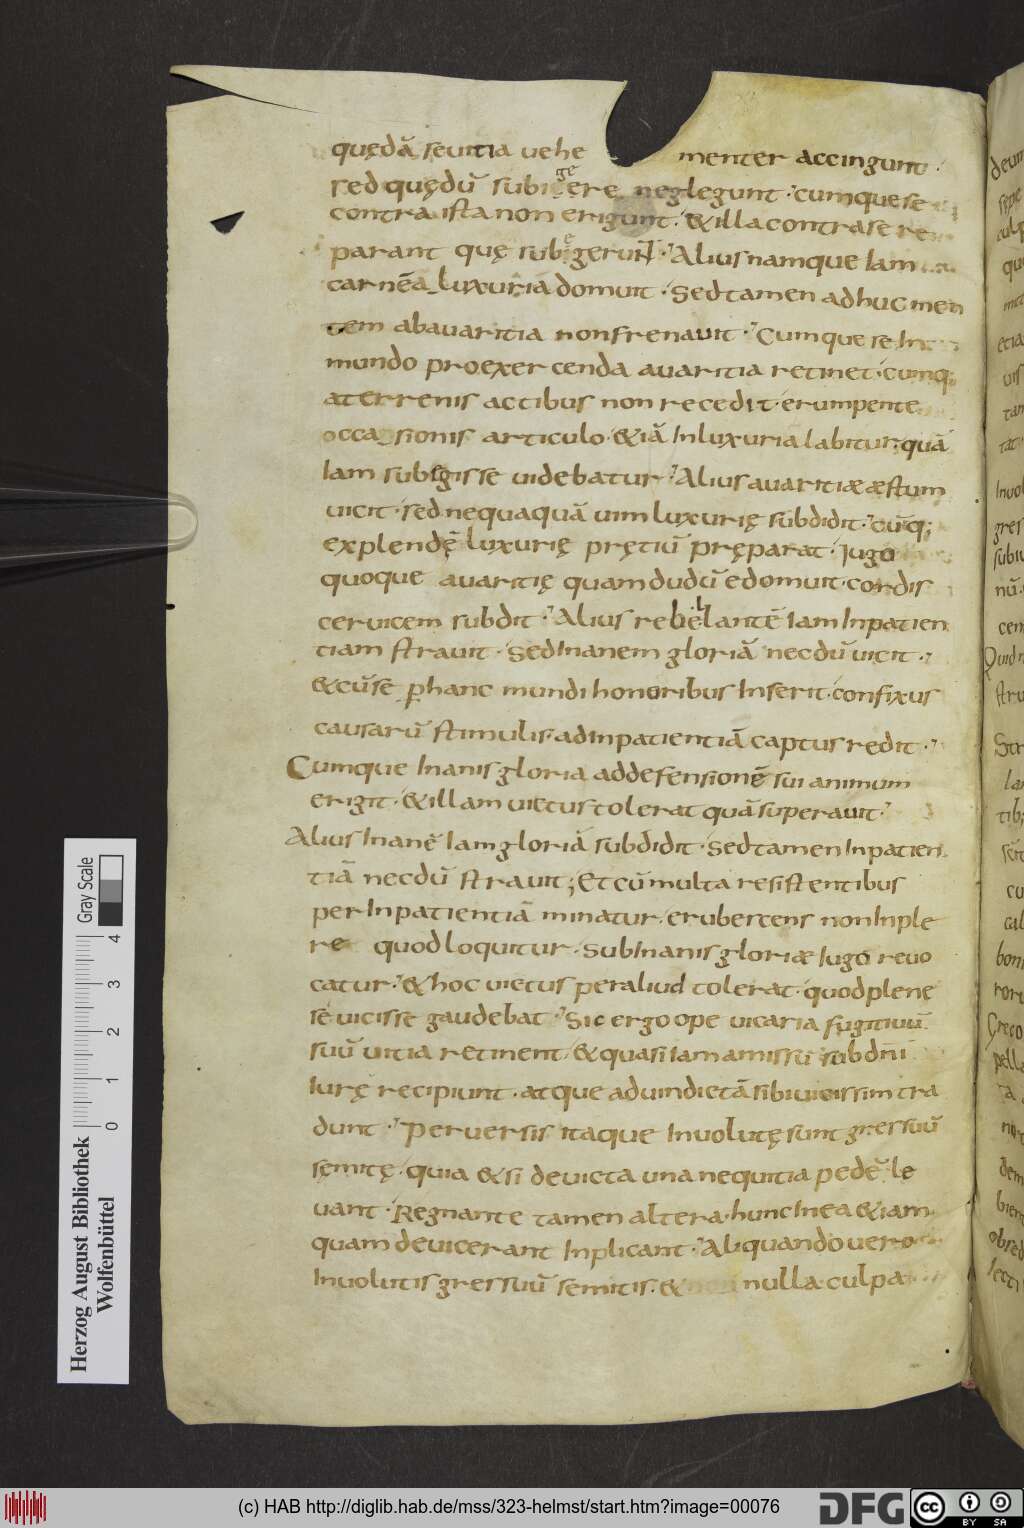 quędā sevitia vehe menter accingunt·
sed quędū subigere neglegunt· cumque se
contra ista non erigunt· & illa contra se re
parant quę subegerunt· Alius namque iam
carnē a luxuria domuit· sed tamen adhuc men
tem ab avaritia non frenavit· Cumque se in
mundo pro exercenda avaritia retinet· cumq;
a terrenis actibus non recedit· erumpente
occasionis articulo· & iā in luxuria labitur· quā
iam subegisse videbatur· Alius avaritiæ æstum
vicit· sed nequaquā vim luxurię subdidit· cūq;
explendę luxurię prętiū pręparat· iugo
quoque avaritię quam dudū edomuit· cordis
cervicem subdit· Alius rebellantē iam inpatien
tiam stravit· sed inanem gloriā necdū vicit·
& cū se p hanc mundi honoribus inserit· confixus
causarū stimulis· ad inpatientiā captus redit·
Cumque inanis gloria ad defensionē sui animum
erigit· & illam victus tolerat quā superavit·
Alius inanē iam gloriā subdidit· sed tamen inpatien
tiā necdū stravit; Et cū multa resistentibus
per inpatientiā minatur· erubercens non inple
re quod loquitur· sub inanis gloriæ iugo revo
catur· & hoc victus per aliud tolerat· quod plene
se vicisse gaudebat· Sic ergo ope vicaria fugitivū
suū vitia retinent· & quasi iam amissū sub dn̄i
iurę recipiunt· atque ad vindictā sibi vicissim tra
dunt· Perversis itaque involutę sunt gressuū
sęmitę· quia & si devicta una nequitia pedē le
vant· Regnante tamen altera· hunc in ea & iam
quam devicerant inplicant· Aliquando vero
involutis gressuū semitis· & nulla culpa
Herzog August Bibliothek
Wolfenbüttel
0 1 2 3 4
Gray Scale
(c) HAB http://diglib.hab.de/mss/323-helmst/start.htm?image=00076
DFG
cc BY SA